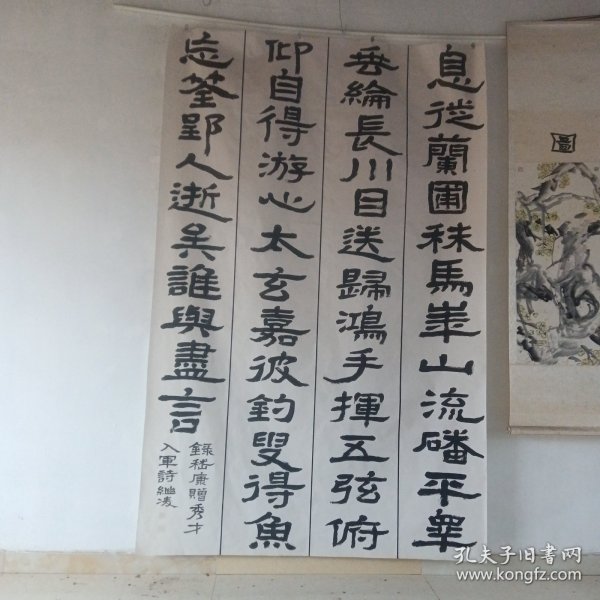 息徒蘭圃秣馬華山流磻平皋
垂綸長川目送歸鴻手揮五弦俯
仰自得游心太玄嘉彼釣叟得魚
忘筌郢人逝矣誰與盡言
錄嵇康贈秀才
入軍詩繼凌
孔夫子旧书网
www.kongfz.com